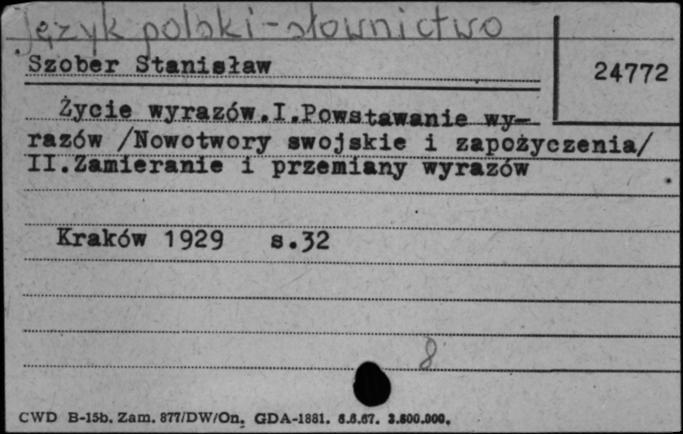 Język polski - słownictwo
Szober Stanisław
24772
Życie wyrazów.I.Powstawanie wy-
razów /Nowotwory swojskie i zapożyczenia/
II.Zamieranie i przemiany wyrazów
Kraków 1929 s.32
8
CWD B-15b. Zam. 877/DW/On. GDA-1881. 6.6.67. 3.600.000.